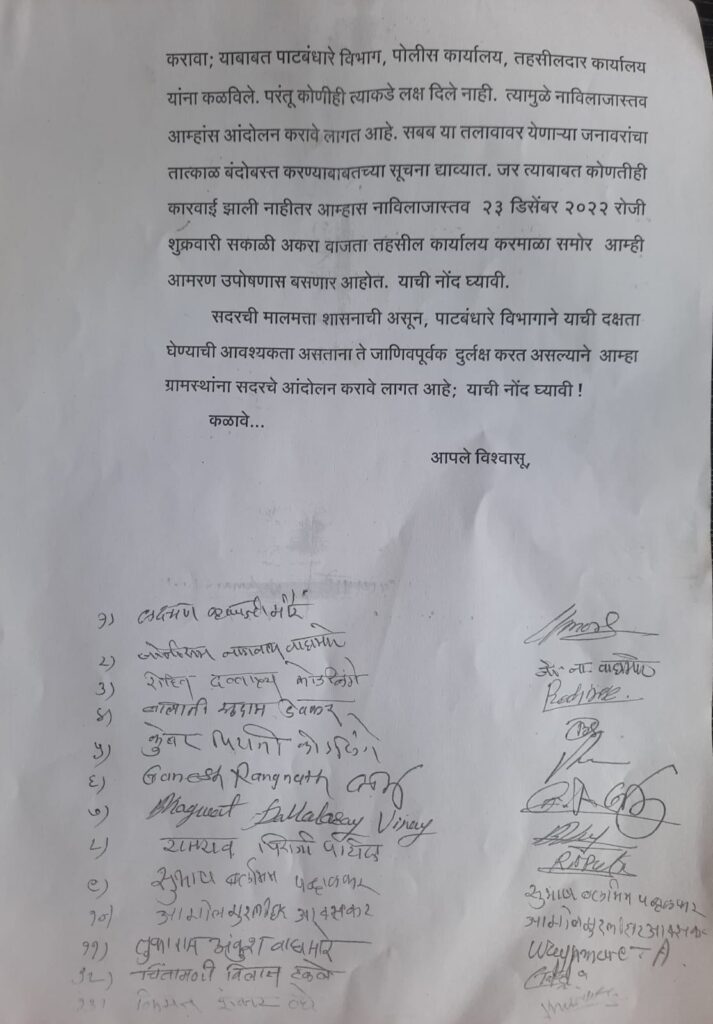 करावा; याबाबत पाटबंधारे विभाग, पोलीस कार्यालय, तहसीलदार कार्यालय
यांना कळविले. परंतू कोणीही त्याकडे लक्ष दिले नाही. त्यामुळे नाविलाजास्तव
आम्हांस आंदोलन करावे लागत आहे. सबब या तलावावर येणाऱ्या जनावरांचा
तात्काळ बंदोबस्त करण्याबाबतच्या सूचना द्याव्यात. जर त्याबाबत कोणतीही
कारवाई झाली नाहीतर आम्हास नाविलाजास्तव २३ डिसेंबर २०२२ रोजी
शुक्रवारी सकाळी अकरा वाजता तहसील कार्यालय करमाळा समोर आम्ही
आमरण उपोषणास बसणार आहोत. याची नोंद घ्यावी.
सदरची मालमत्ता शासनाची असून, पाटबंधारे विभागाने याची दक्षता
घेण्याची आवश्यकता असताना ते जाणिवपूर्वक दुर्लक्ष करत असल्याने आम्हा
ग्रामस्थांना सदरचे आंदोलन करावे लागत आहे; याची नोंद घ्यावी !
कळावे...
आपले विश्वासू,
१) लक्ष्मण मोरे
२) वाघमोरे
जे. ना. वाघमोरे
३) दत्तात्रय
४) बालाजी सुदाम देवकर
५) कुबेर
६) Ganesh Rangnath
७) Bhagwat Vinay
८) रामराव
९) सुभाष बळीराम
सुभाष बळीराम
१०)
११) तुकाराम अंकुश वाघमोरे
१२) चिंतामणी विलास
१३)